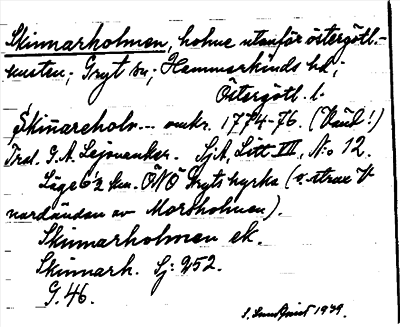 Skinnarholmen, holme utanför östergötl.-
kusten; Gryt sn; Hammarkinds hd;
Östergötl. l.
Skinareholm--- omkr. 1774-76. (Väul!)
Trol. G. A. Lejonanker. SjA, Litt. VII, No 12.
Läge 6½ km. ÖNÖ Gryts kyrka (o. strax V
nordändan av Morsholmen).
Skinnarholmen ek.
Skinnarh. Sj: 252.
G. 46.
S. Lundquist 1939.